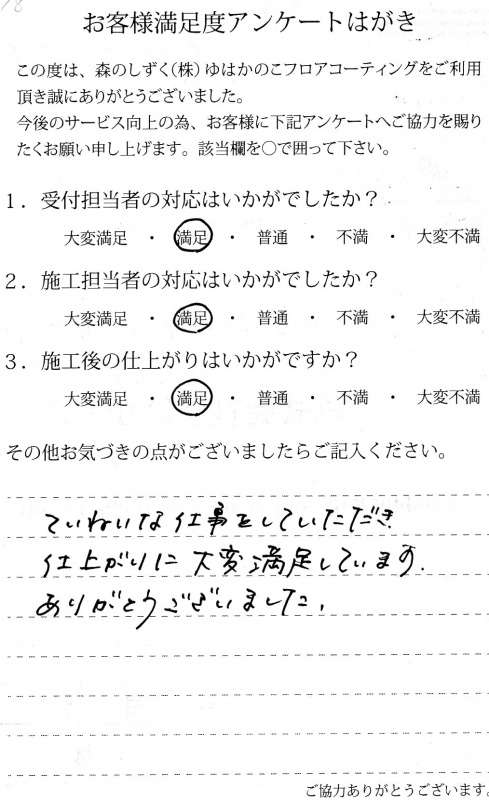 お客様満足度アンケートはがき
この度は、森のしずく（株）ゆはかのこフロアコーティングをご利用
頂き誠にありがとうございました。
今後のサービス向上の為、お客様に下記アンケートへご協力を賜り
たくお願い申し上げます。該当欄を〇で囲って下さい。
1．受付担当者の対応はいかがでしたか？
大変満足 ・ 満足 ・ 普通 ・ 不満 ・ 大変不満
2．施工担当者の対応はいかがでしたか？
大変満足 ・ 満足 ・ 普通 ・ 不満 ・ 大変不満
3．施工後の仕上がりはいかがですか？
大変満足 ・ 満足 ・ 普通 ・ 不満 ・ 大変不満
その他お気づきの点がございましたらご記入ください。
ていねいな仕事をしていただき
仕上がりに大変満足しています.
ありがとうございました.
ご協力ありがとうございます。